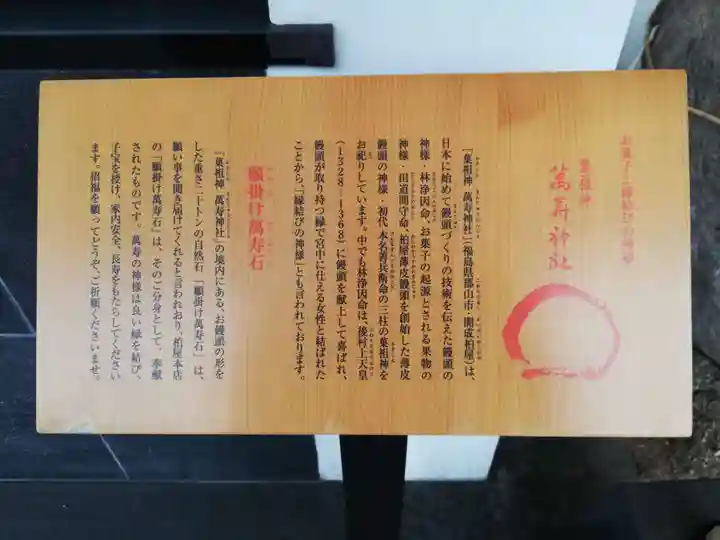 お菓子と縁結びの神様
菓祖神
萬寿神社
「菓祖神 萬寿神社」(福島県郡山市・開成柏屋)は、
日本に始めて饅頭づくりの技術を伝えた饅頭の
神様・林浄因命、お菓子の起源とされる果物の
神様・田道間守命、柏屋薄皮饅頭を創始した薄皮
饅頭の神様・初代 本名善兵衛命の三柱の菓祖神を
お祀りしています。中でも林浄因命は、後村上天皇
(1328-1368)に饅頭を献上して喜ばれ、
饅頭が取り持つ縁で宮中に仕える女性と結ばれた
ことから、「縁結びの神様」とも言われております。
願掛け萬寿石
「菓祖神 萬寿神社」の境内にある、お饅頭の形を
した重さ二十トンの自然石「願掛け萬寿石」は、
願い事を聞き届けてくれると言われており、柏屋本店
の「願掛け萬寿石」は、そのご分身として、奉献
されたものです。萬寿の神様は良い縁を結び、
子宝を授け、家内安全、長寿をもたらしてください
ます。招福を願ってどうぞ、ご祈願くださいませ。